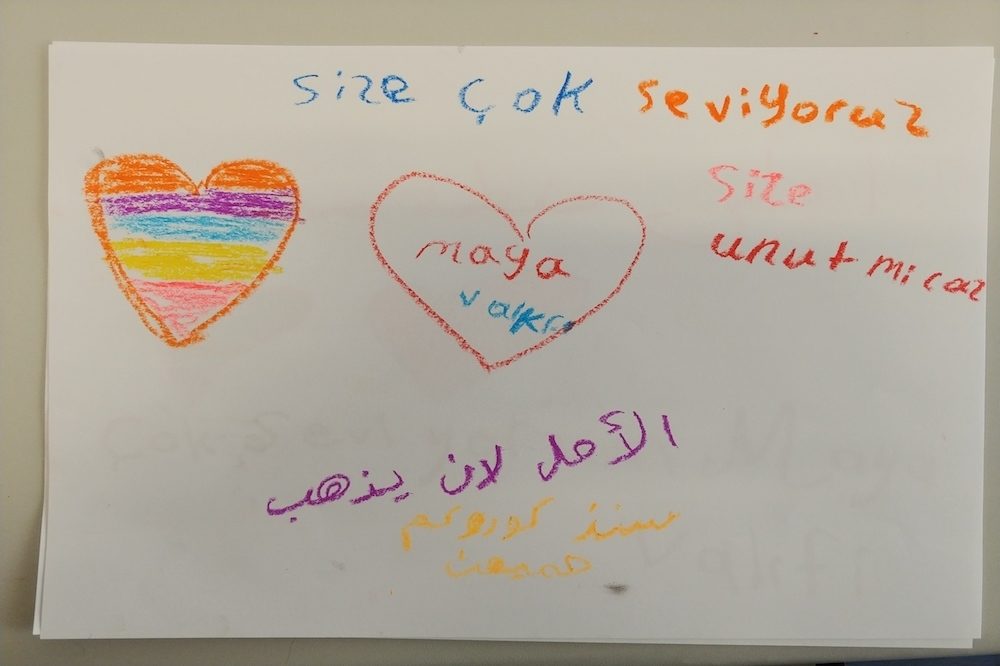 size çok seviyoruz
size
unutmicaz
maya
vakfı
الأمل لان يذهب
سنتذكوروكم